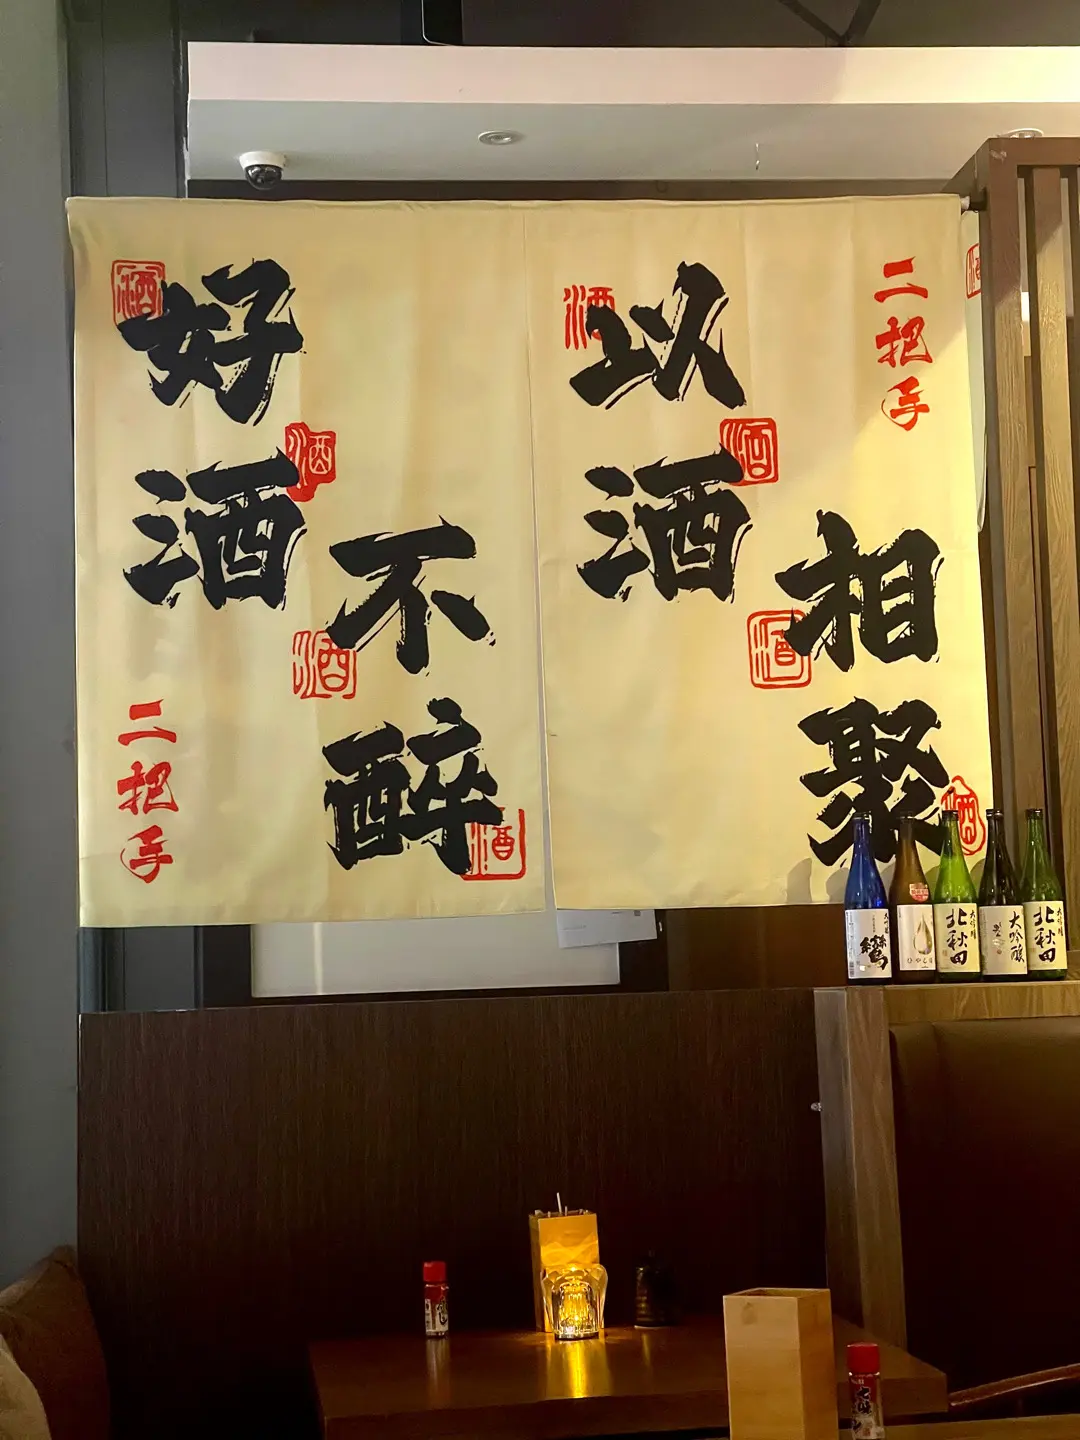 好酒
不醉
二把手
以酒
相聚
二把手
酒
酒
酒
酒
酒
酒
酒
酒
北秋田
大吟醸
北秋田
七味